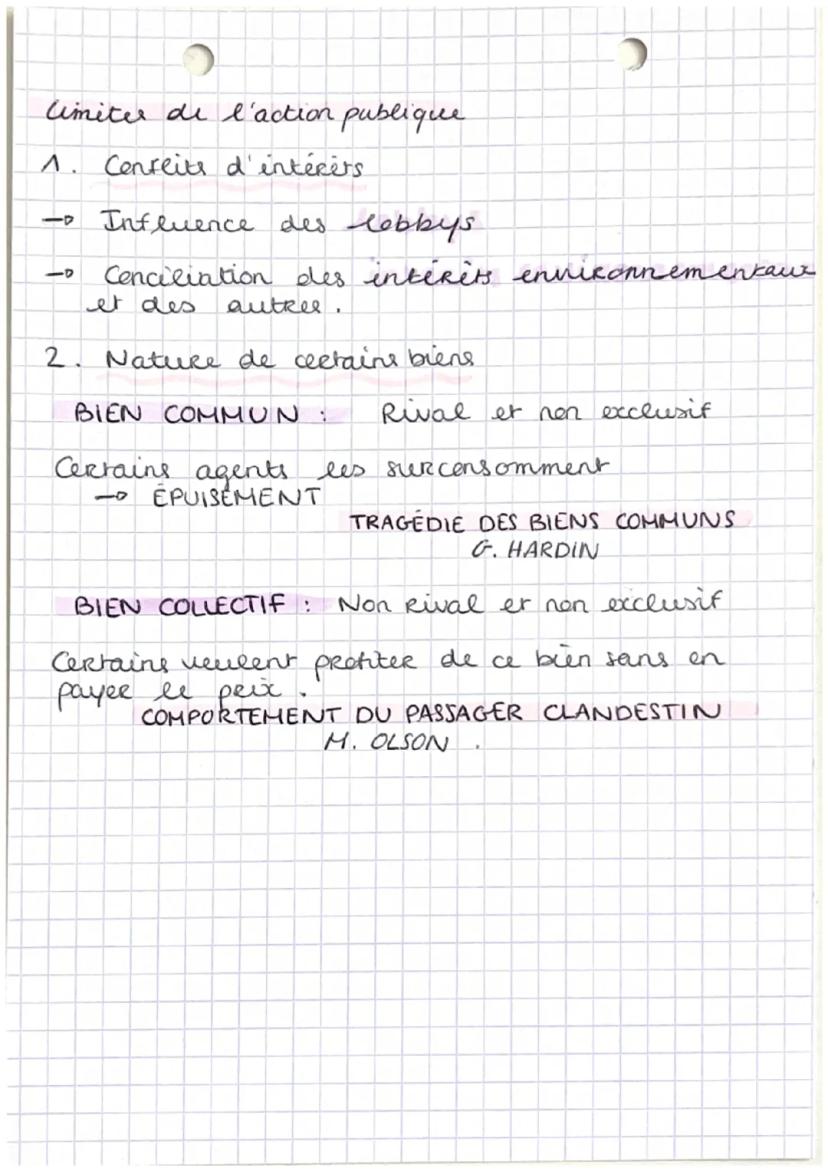 Limites de l'action publique
1. Conflits d'intérêts
→ Influence des lobbys
→ Conciliation des intérêts environnementaux
et des autres.
2. Nature de certains biens
BIEN COMMUN : Rival et non exclusif
Certains agents les surconsomment
→ ÉPUISEMENT
TRAGÉDIE DES BIENS COMMUNS
G. HARDIN
BIEN COLLECTIF : Non rival et non exclusif
Certains veulent profiter de ce bien sans en
payer le prix.
COMPORTEMENT DU PASSAGER CLANDESTIN
M. OLSON.